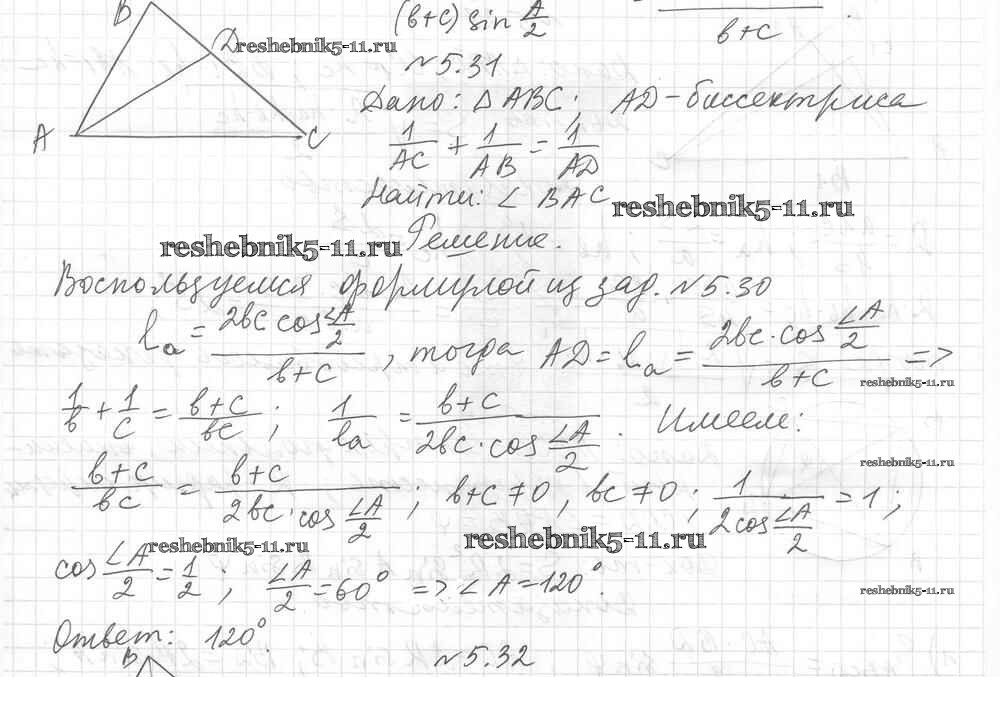 B
(в+с) sin A/2
в+с
D reshebnik5-11.ru
№5.31
Дано: △ABC; AD-биссектриса
A C 1/AC + 1/AB = 1/AD
Найти: ∠BAC reshebnik5-11.ru
reshebnik5-11.ru Решение.
Воспользуемся формулой из зад. №5.30
lₐ = 2вс cos ∠A/2 / в+с , тогда AD = lₐ = 2вс·cos ∠A/2 / в+с =>
reshebnik5-11.ru
1/в + 1/с = в+с / вс ; 1/lₐ = в+с / 2вс·cos ∠A/2 . Имеем:
reshebnik5-11.ru
в+с / вс = в+с / 2вс·cos ∠A/2 ; в+с ≠ 0, вс ≠ 0 ; 1 / 2cos ∠A/2 = 1 ;
reshebnik5-11.ru reshebnik5-11.ru
cos ∠A/2 = 1/2 ; ∠A/2 = 60° => ∠A = 120°.
reshebnik5-11.ru
Ответ: 120°.
B №5.32